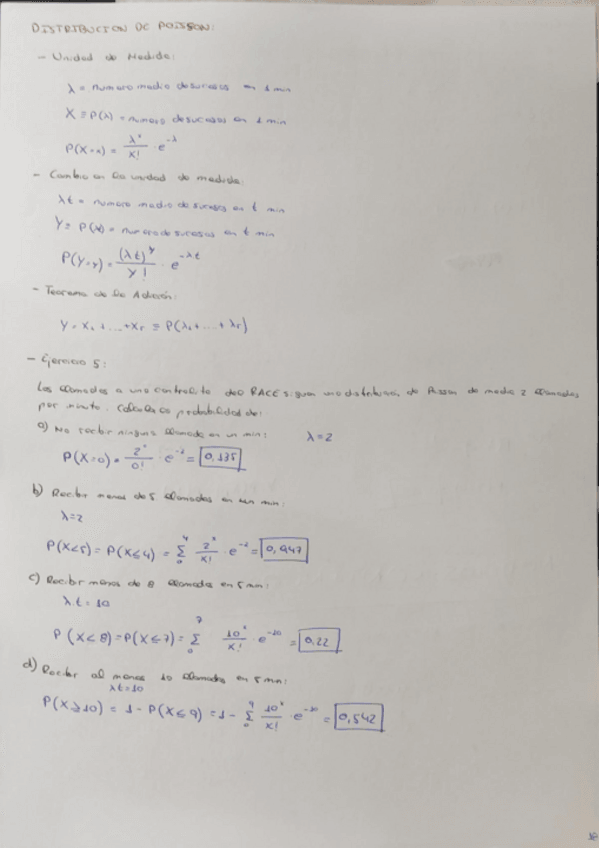 DISTRIBUCION DE POISSON:
- Unidad de Medida:
λ = numero medio de sucesos en 1 min
X ≡ P(λ) = numero de sucesos en 1 min
P(X=x) = λ^x / x! · e^-λ
- Cambio en la unidad de medida:
λt = numero medio de sucesos en t min
Y ≡ P(λt) = numero de sucesos en t min
P(Y=y) = (λt)^y / y! · e^-λt
- Teorema de la Adición:
Y = X₁ + ... + Xr ≡ P(λ₁ + ... + λr)
- Ejercicio 5:
Las llamadas a una centralita del RACE siguen una distribucion de Poisson de media 2 llamadas
por minuto. Calcula la probabilidad de:
a) No recibir ninguna llamada en un min: λ=2
P(X=0) = 2^x / 0! · e^-2 = 0,135
b) Recibir menos de 5 llamadas en un min:
λ=2
P(X<5) = P(X≤4) = Σ_0^4 2^x / x! · e^-2 = 0,947
c) Recibir menos de 8 llamadas en 5 min:
λt = 10
P(X<8) = P(X≤7) = Σ_0^7 10^x / x! · e^-10 = 0,22
d) Recibir al menos 10 llamadas en 5 min:
λt=10
P(X≥10) = 1 - P(X≤9) = 1 - Σ_0^9 10^x / x! · e^-10 = 0,542